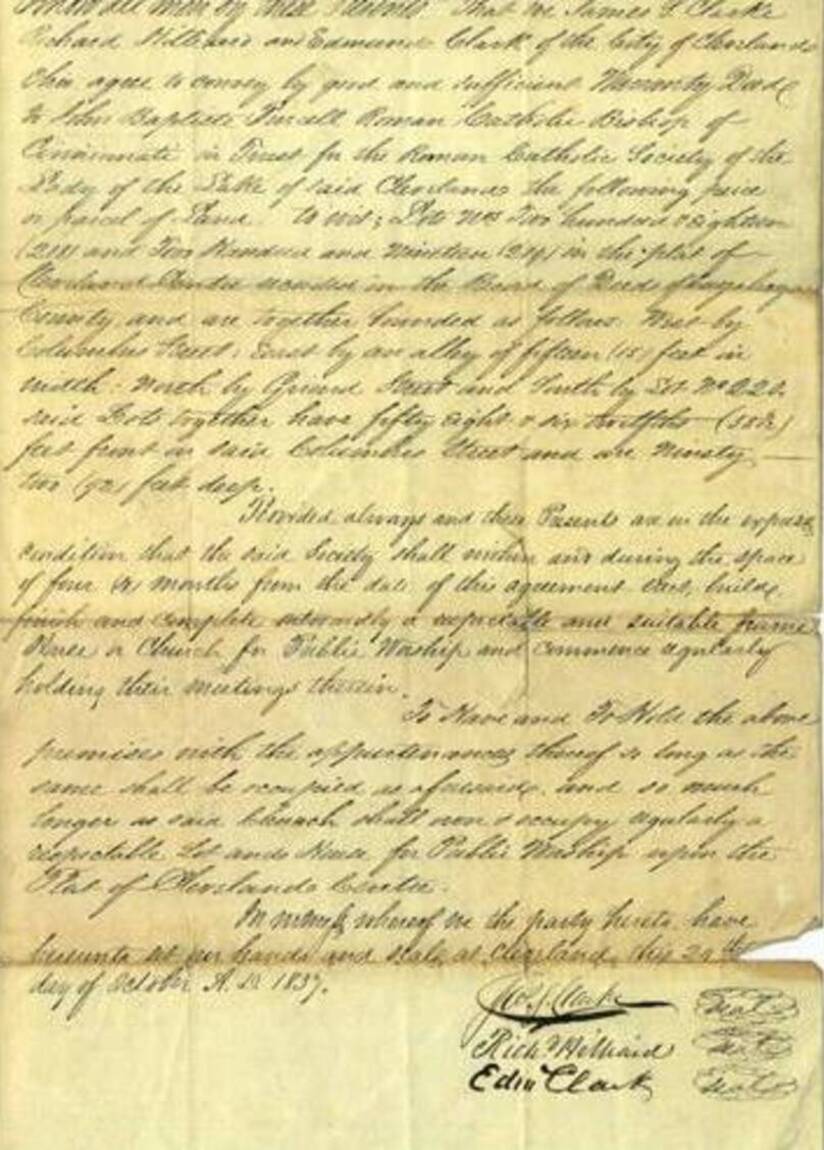 Know all men by these Presents That we James S Clarke
Richard Hilliard and Edmund Clark of the City of Cleveland
Ohio agree to convey by good and sufficient Warranty Deed
to John Baptiste Purcell Roman Catholic Bishop of
Cincinnati in Trust for the Roman Catholic Society of the
Lady of the Lake of said Cleveland the following piece
or parcel of Land to wit; Lots Nos Two hundred & eighteen
(218) and Two Hundred and Nineteen (219) in the plat of
Cleveland Centre recorded in the Record of Deeds of Cuyahoga
County, and are together bounded as follows. West by
Columbus Street; East by an alley of fifteen (15) feet in
width. North by Girard Street and South by Lot No 220.
said Lots together have fifty eight & six twelfths
feet front on said Columbus Street and are Ninety
two (92) feet deep.
Provided always and these Presents are on the express
condition that the said Society shall within and during the space
of four (4) months from the date of this agreement erect, build,
finish and complete outwardly a respectable and suitable frame
House or Church for Public Worship and commence regularly
holding their meetings therein.
To Have and To Hold the above
premises with the appurtenances thereof so long as the
same shall be occupied as aforesaid, and so much
longer as said Church shall own & occupy regularly a
respectable Lot and House for Public Worship upon the
Plat of Cleveland Centre.
In whereof we the party hereto have
hereunto set our hands and seals at Cleveland, this
day of October A.D. 1837.
Jas. S. Clark Seal
Richd Hilliard Seal
Edm Clark Seal